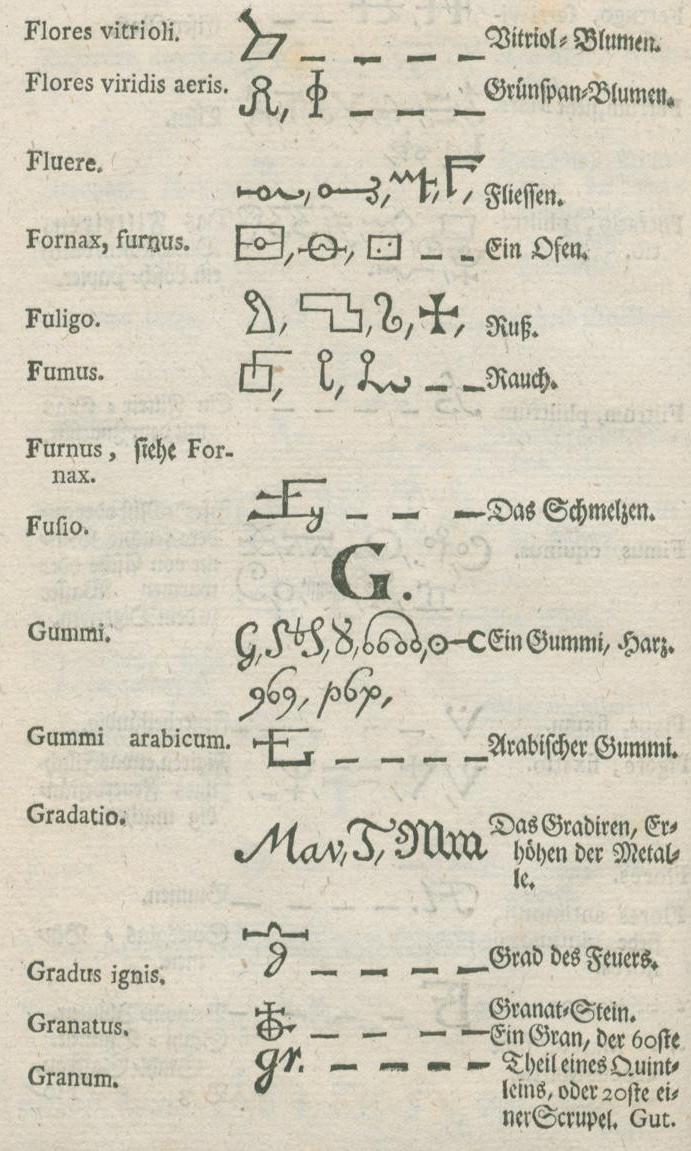 Flores vitrioli. — — — — Vitriol⸗Blumen.
Flores viridis aeris. — — — Grünſpan⸗Blumen.
Fluere. Flieſſen.
Fornax, furnus. — — Ein Ofen.
Fuligo. Ruß.
Fumus. — — Rauch.
Furnus, ſiehe For-
nax.
Fuſio. — — — Das Schmelzen.
G.
Gummi. Ein Gummi, Harz.
Gummi arabicum. — — — — Arabiſcher Gummi.
Gradatio. Das Gradiren, Er⸗
höhen der Metal⸗
le.
Gradus ignis. — — — — Grad des Feuers.
Granatus. — — — — Granat⸗Stein.
Granum. gr. — — — — — Ein Gran, der 60ſte
Theil eines Quint⸗
leins, oder 20ſte ei⸗
ner Scrupel. Gut.